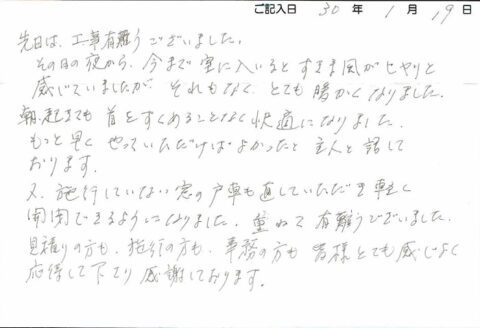 ご記入日 30 年 1 月 19 日
先日は、工事有難うございました。
その日の夜から、今まで室に入いるとすきま風がヒヤリと
感じていましたが それもなく、とても暖かくなりました。
朝、起きても 首をすくめることなく快適になりました。
もっと早く やっていただけばよかったと 主人と話して
おります。
又、施行していない窓の戸車も直していただき軽く
開閉できるようになりました。重ねて 有難うございました。
見積りの方も、施行の方も、事務の方も 皆様とても感じよく
応待して下さり 感謝しております。